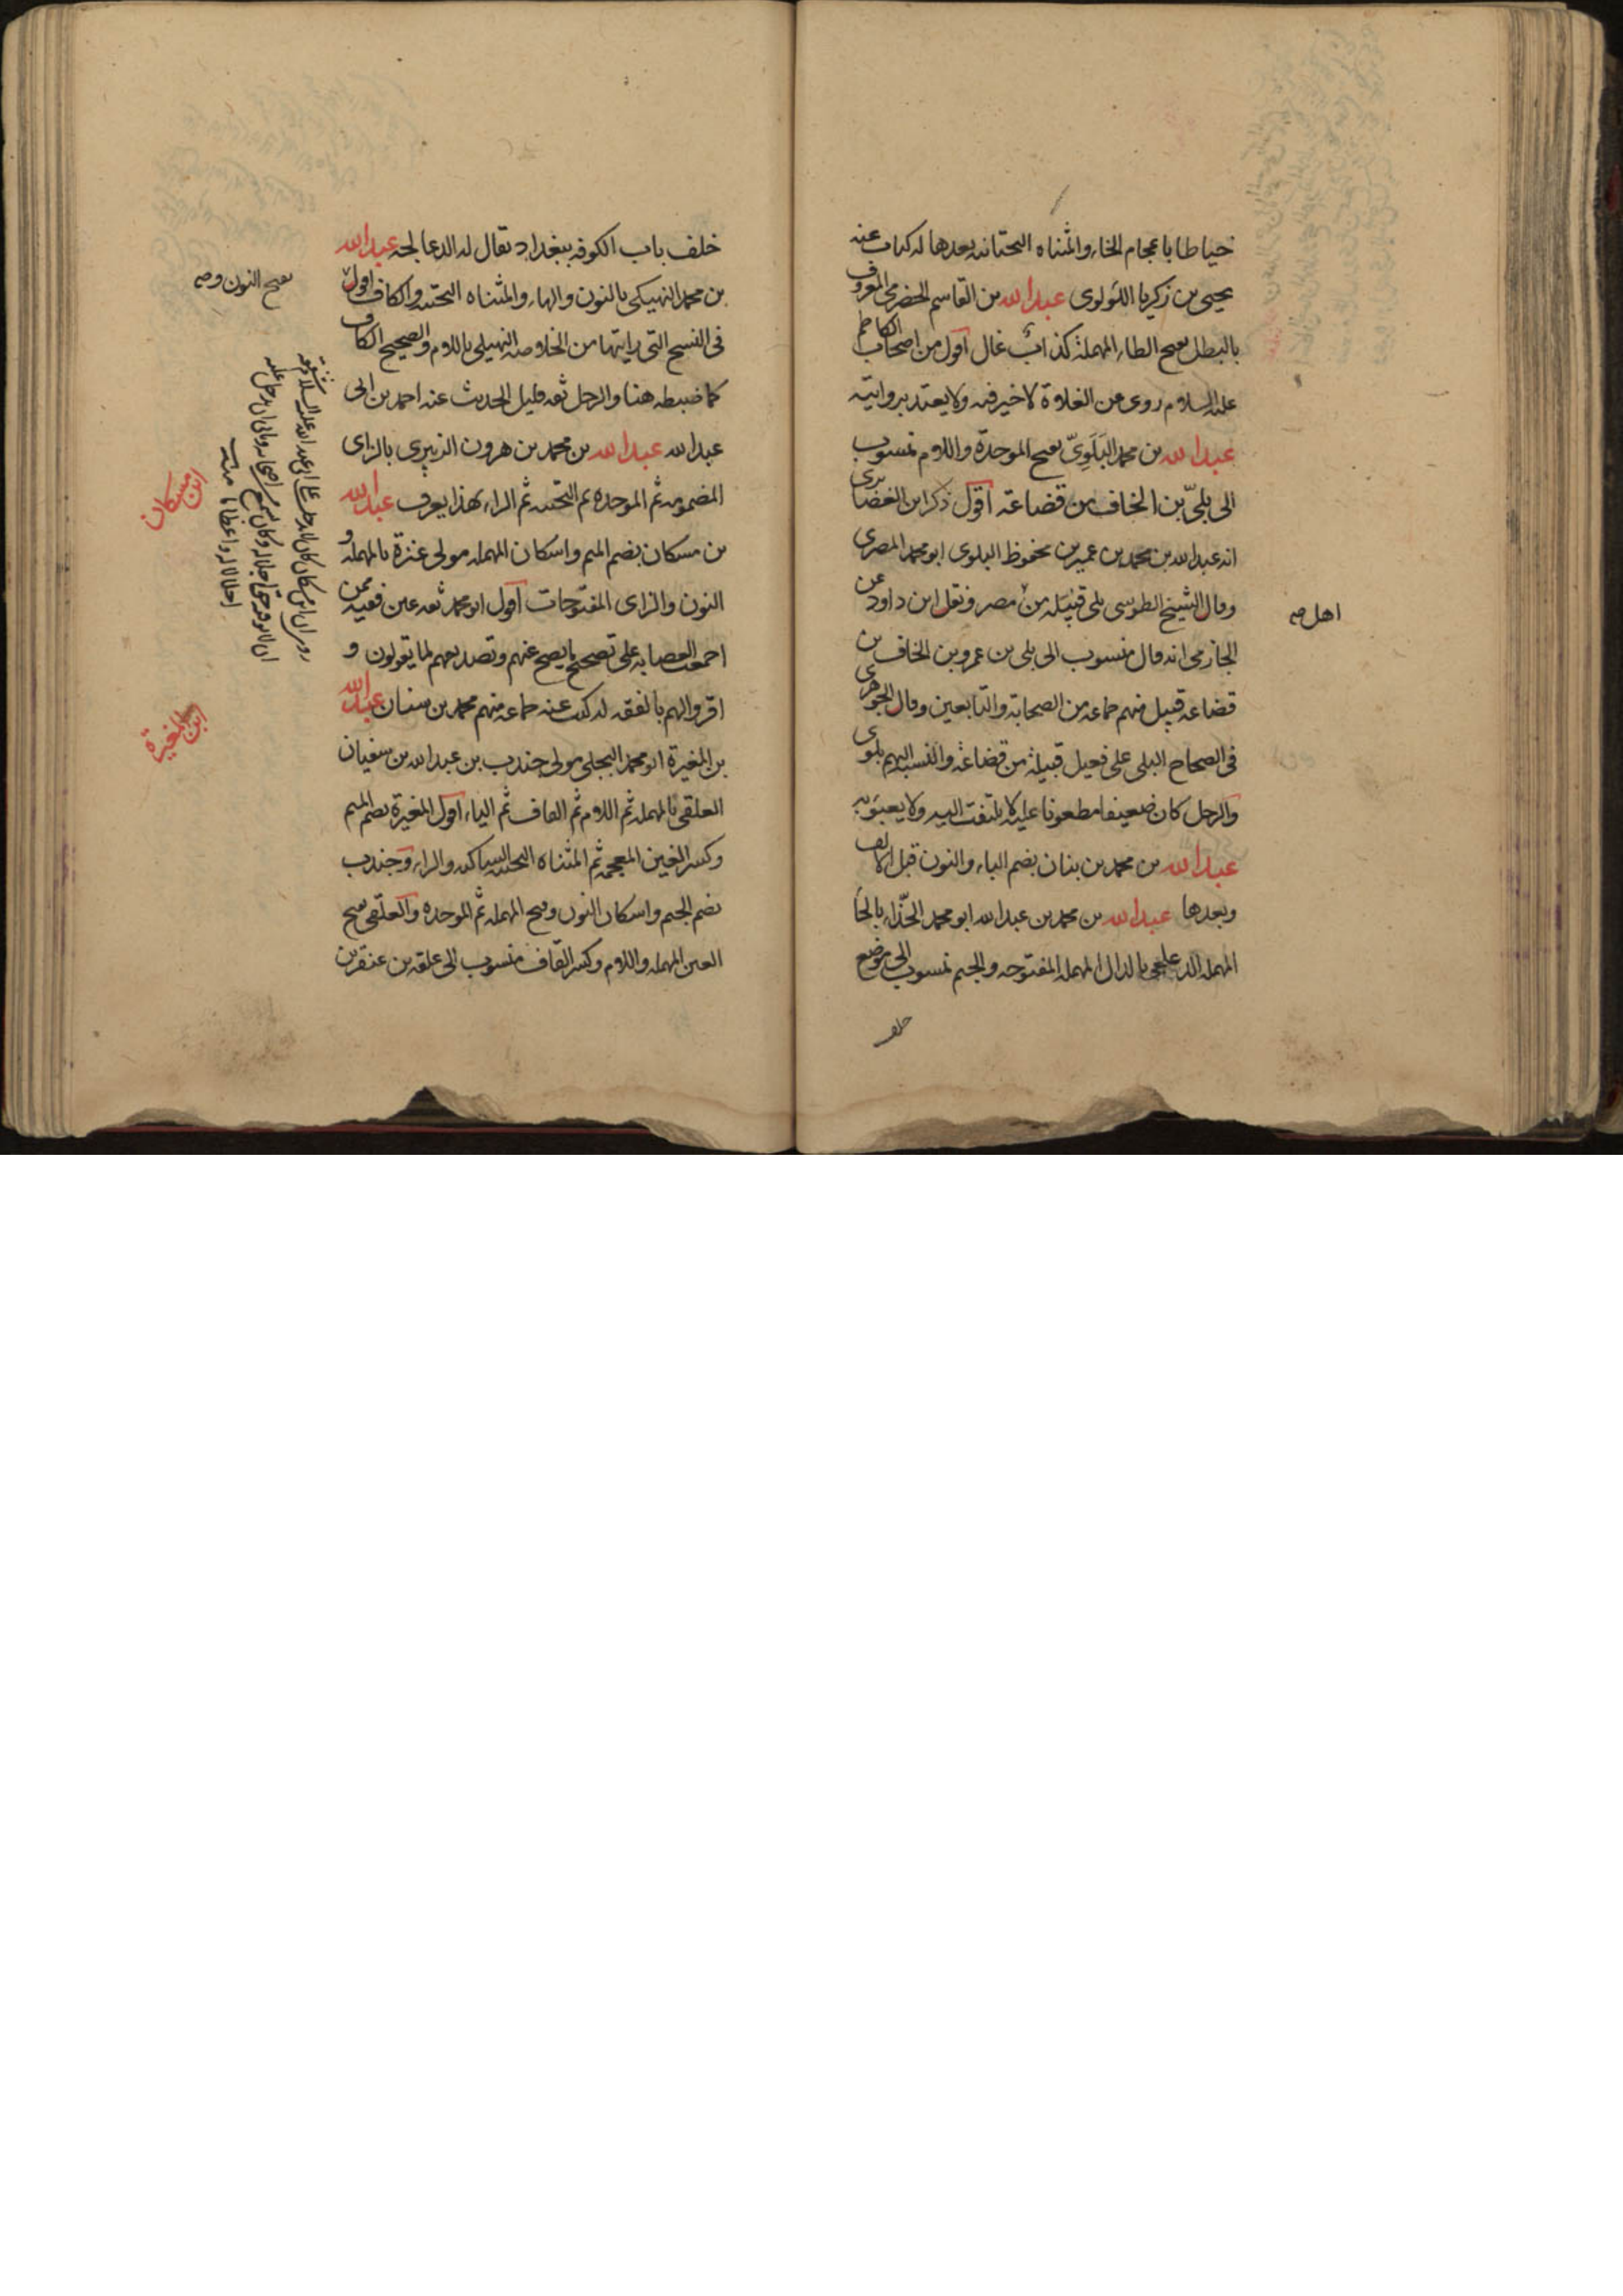 خياطا باعجام الخاء والمثناه التحتانيه بعدها له كتاب عنه
يحيى بن زكريا اللؤلوى عبدالله بن القاسم الحضرمى المعروف
بالبطل بفتح الطاء المهملة كذاب غال اقول من اصحاب الكاظم
عليه السلام روى عن الغلاة لا خير فيه ولا يعتد بروايته
عبدالله بن محمد البَلَوِىّ بفتح الموحدة واللام منسوب
الى بلىّ بن الخاف بن قضاعة اقول ذكر ابن الغضايرى
انه عبدالله بن محمد بن عمير بن محفوظ البلوى ابو محمد المصرى
وقال الشيخ الطوسى بلى قبيله من مصر ونقل ابن داود عن
اهل صه
الحازمى انه قال منسوب الى بلى بن عمرو بن الخاف بن
قضاعه قبيل منهم جماعه من الصحابة والتابعين وقال الجوهرى
فى الصحاح البلى على فعيل قبيلة من قضاعة والنسبه اليهم بلوى
والرجل كان ضعيفا مطعونا عليه لا يلتفت اليه ولا يعبؤ به
عبدالله بن محمد بن بنان بضم الباء والنون قبل الالف
وبعدها عبدالله بن محمد بن عبدالله ابو محمد الحذّاء بالحا
المهمله الدعلجى بالدال المهمله المفتوحه والجيم منسوب الى موضع
خلف
خلف باب الكوفه ببغداد يقال له الدعالجه عبدالله
بن محمد النهيكى بالنون والهاء والمثناه التحتيه والكاف اقول
بفتح النون صه
فى النسخ التى رايتها من الخلاصه النهيلى باللام والصحيح الكاف
كما ضبطه هنا والرجل ثقه قليل الحديث عنه احمد بن ابى
عبدالله عبدالله بن محمد بن هرون الزبيرى بالزاى
المضمومه ثم الموحده ثم التحتيه ثم الراء بهذا يعرف عبدالله
بن مسكان بضم الميم واسكان المهمله مولى عنزة بالمهمله و
النون والزاى المفتوحات اقول ابو محمد ثقه عين فقيه ممن
اجمعت العصابه على تصحيح ما يصح عنهم وتصديقهم لما يقولون و
اقروا لهم بالفقه له كتب عنه جماعه منهم محمد بن سنان عبدالله
بن المغيرة ابو محمد البجلى مولى جندب بن عبدالله بن سفيان
العلقى بالمهمله ثم اللام ثم القاف ثم الياء اقول المغيرة بضم الميم
وكسر الغين المعجمه ثم المثناه التحتيه الساكنه والراء وجندب
بضم الجيم واسكان النون وفتح المهمله ثم الموحده والعلقى بفتح
العين المهمله واللام وكسر القاف منسوب الى علقه بن عبقر بن
ابن مسكان
ابن المغيرة
روى ان ابن مسكان كان لا يدخل على ابى عبدالله عليه السلام